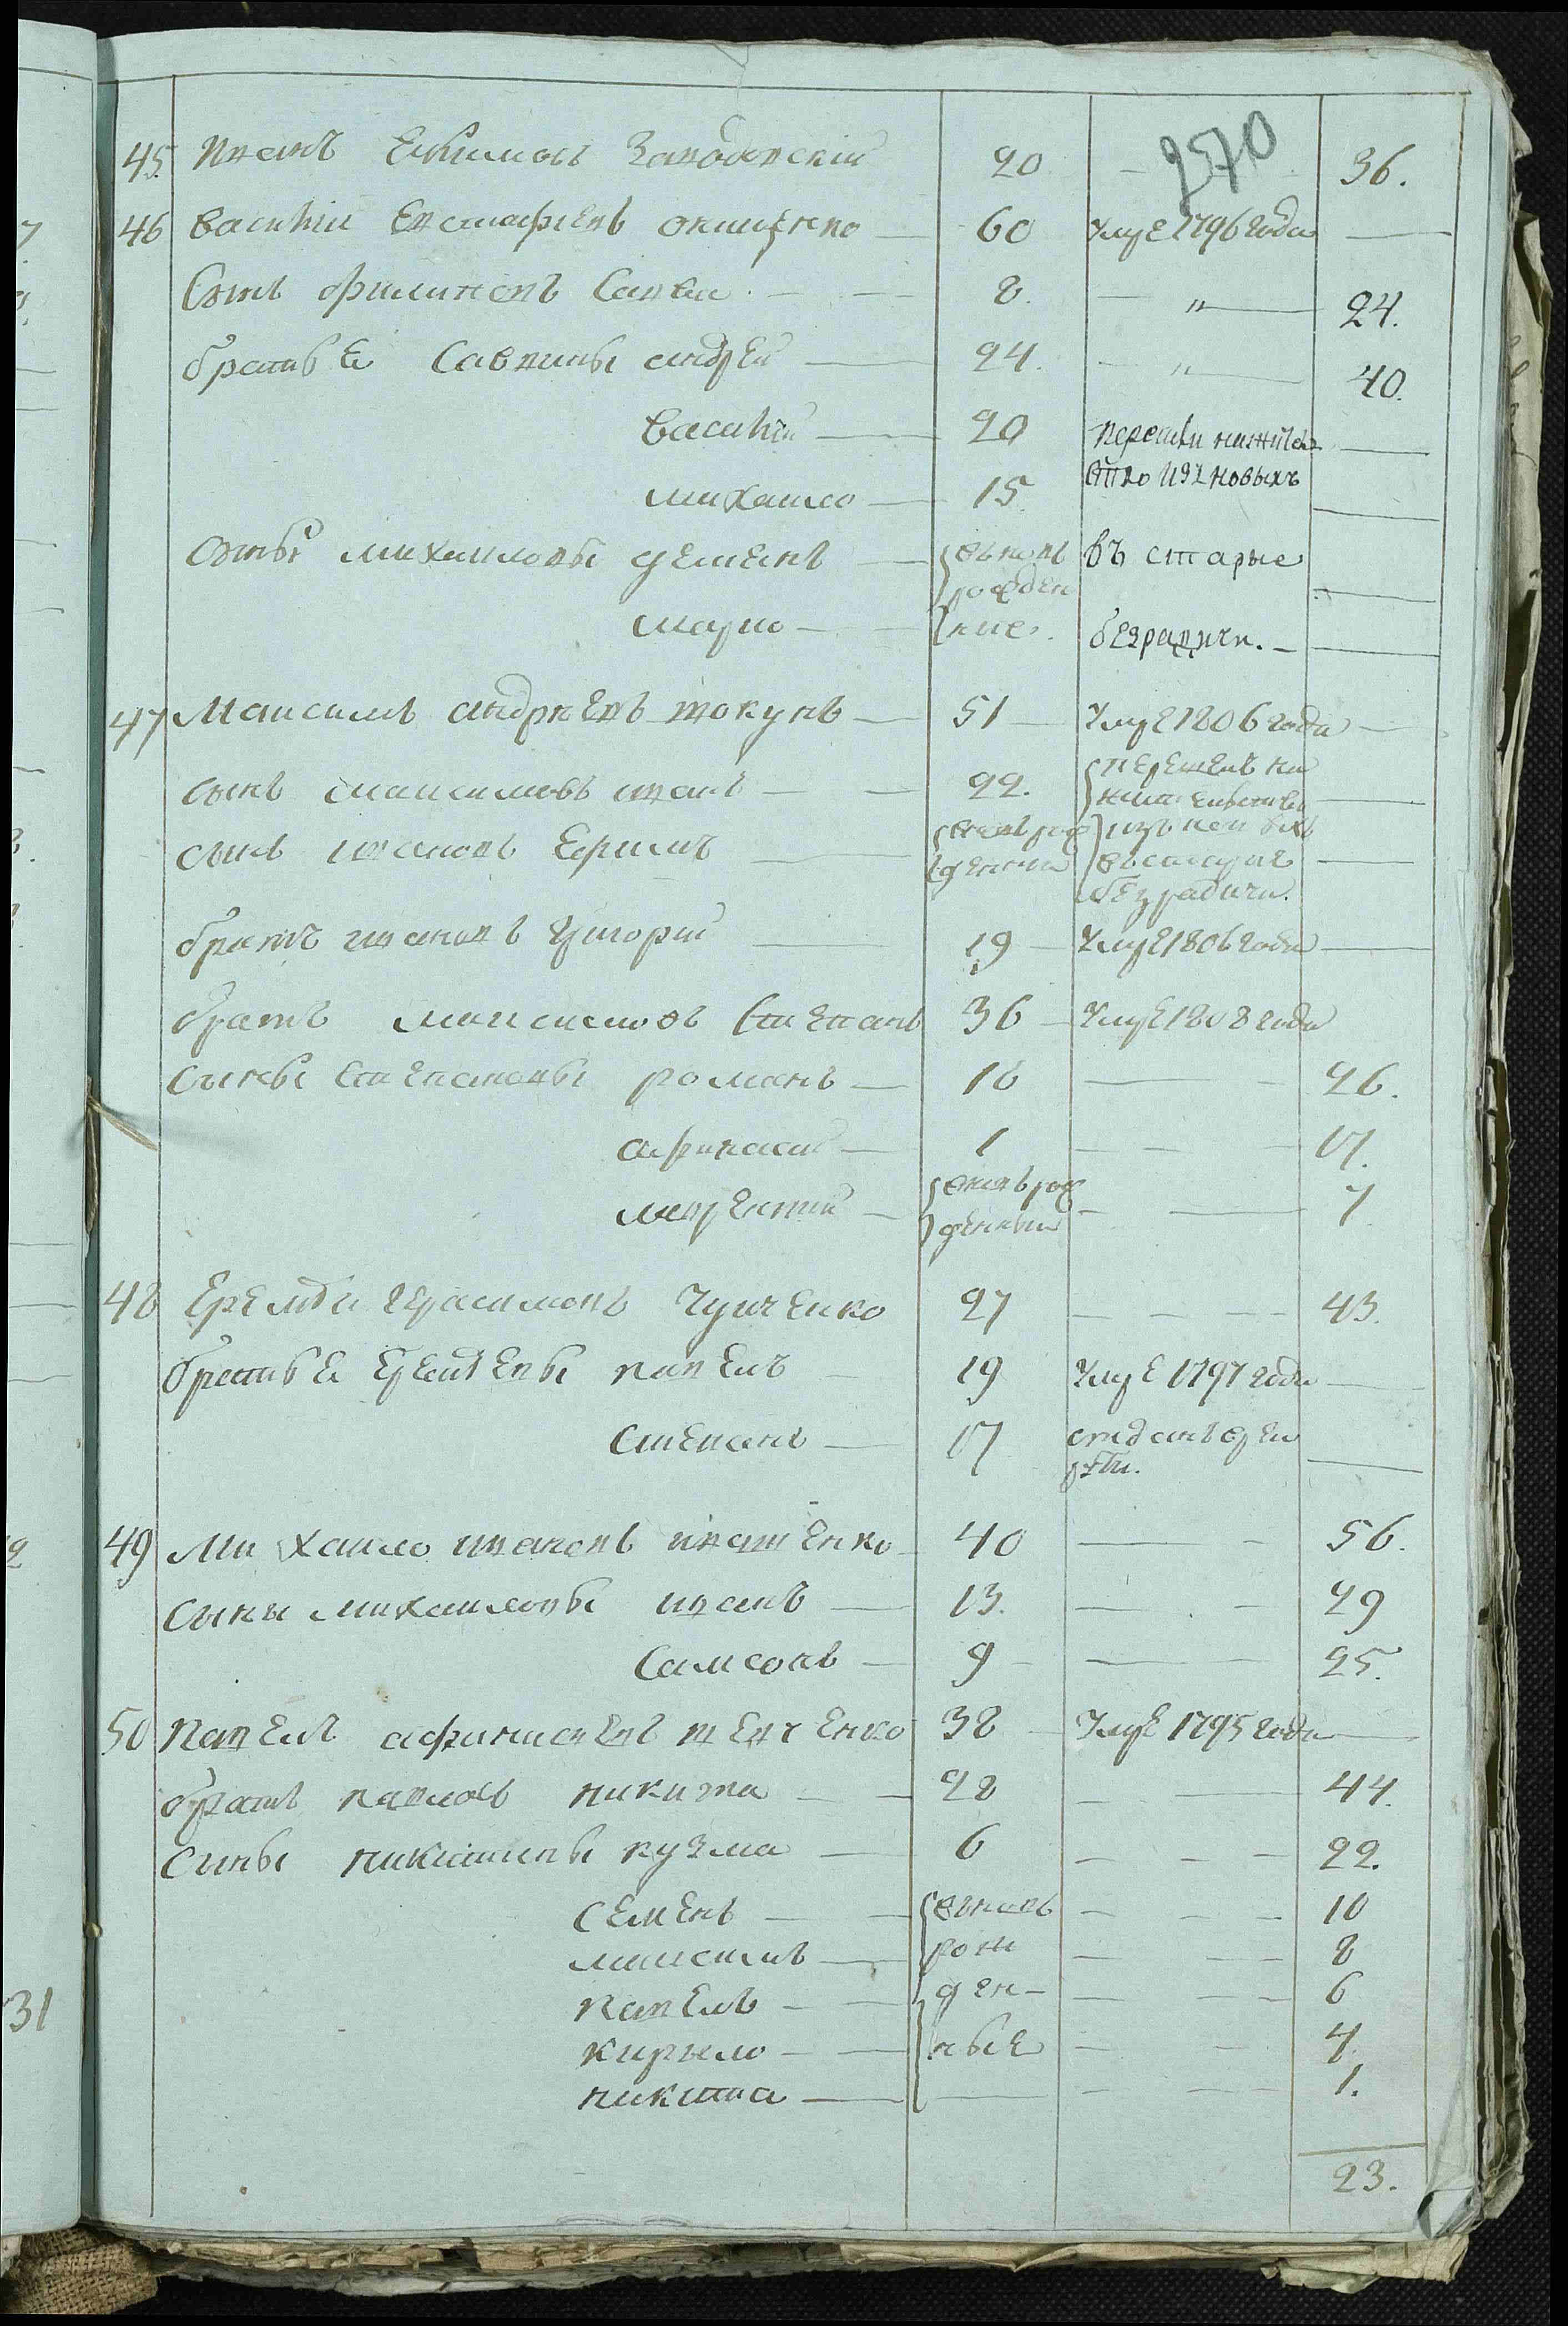 270
45. Иванъ Екимовъ 20 — 36.
46 Василий Евстафіевъ Онищенко — 60 Умре 1796 года —
Сынъ Филиповъ Савва — 8. — " — 24.
братья Саввины Андрей — 24. — " — 40.
Василий — 20 перешли на жител —
Михаило — 15 ство изъ новыхъ —
Сыны Михаиловы Деменъ — вновь въ старые —
рожден
Марко — ние. безрадичи. —
47 Максимъ Андреевъ Шокунъ — 51 — Умре 1806 года —
сынъ Максимовъ Иванъ — 22. перешелъ на
жителство —
сынъ Ивановъ Ефимъ — вновь рож изъ новыхъ
денный въ старые —
безрадичи.
братъ Ивановъ Григорий — 19 — Умре 1806 года —
братъ Максимовъ Степанъ 36 — Умре 1808 года
Сыны Степановы Романъ — 10 — 26.
Афанасий — 1 — 17.
Лаврентий — вновь рож — 7
денный
48 Еремѣй Герасимовъ Чупченко 27 — 43.
братья Еремѣевы Павелъ — 19 Умре 1797 года —
Степанъ — 17 отданъ в рек
руты. —
49 Михаило Ивановъ Иващенко 40 — 56.
Сыны Михаиловы Иванъ — 13. — 29
Самсонъ — 9 — 25.
50 Павелъ Афанасиевъ Шевченко 38 — Умре 1795 года —
братъ Павловъ Никита — 28 — 44.
Сыны Никитины Кузма — 6 — 22.
Семенъ — вновь — 10
Максимъ — рож — 8
Павелъ — ден — 6
Кирыло — ные — 4
Никита — 1.
23.
31